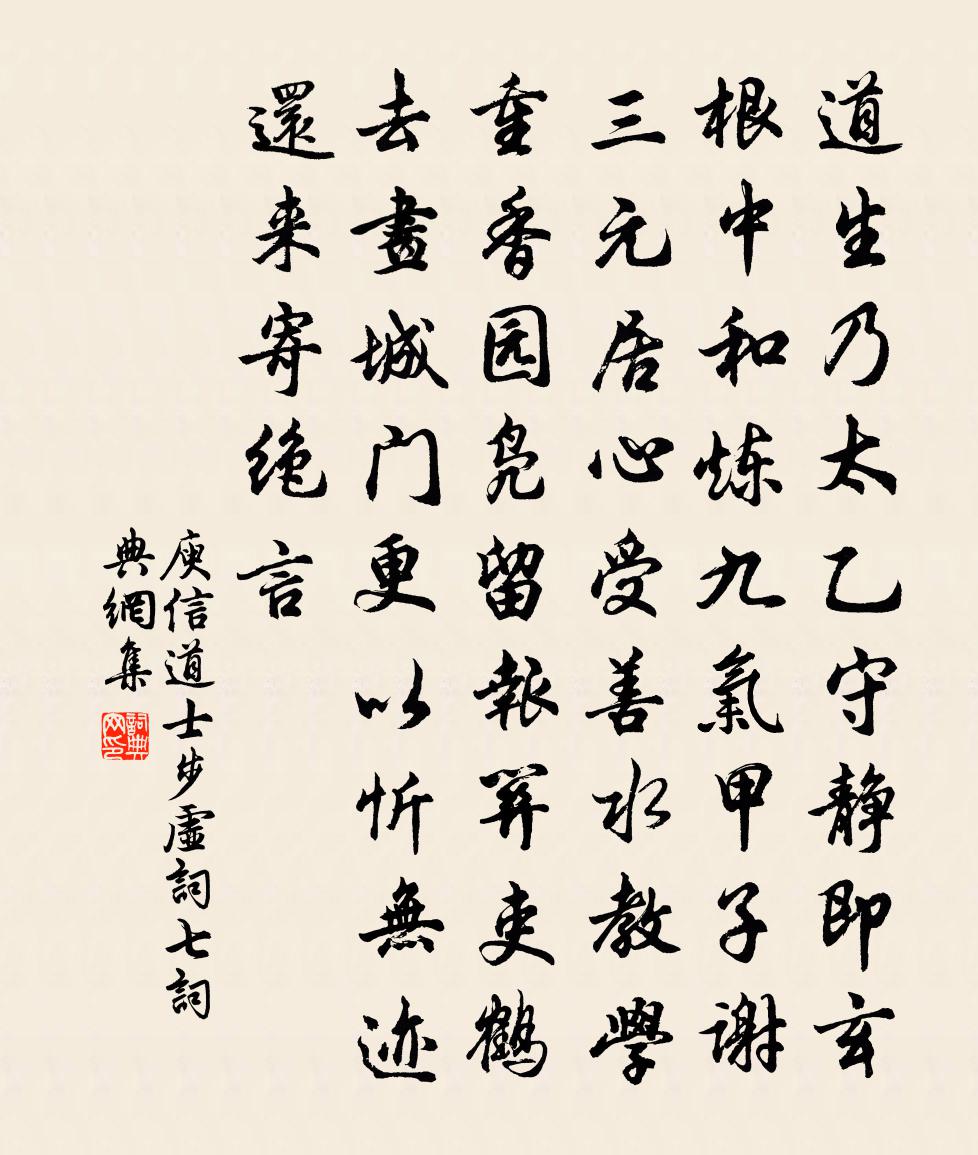 道生乃太乙守静即玄
根中和炼九氣甲子謝
三元居心受善水教學
重香园凫留報關吏鶴
去畫城门更以忻無迹
還来寄绝言
庾信道士步虛詞七詞
典網集
詞典网印